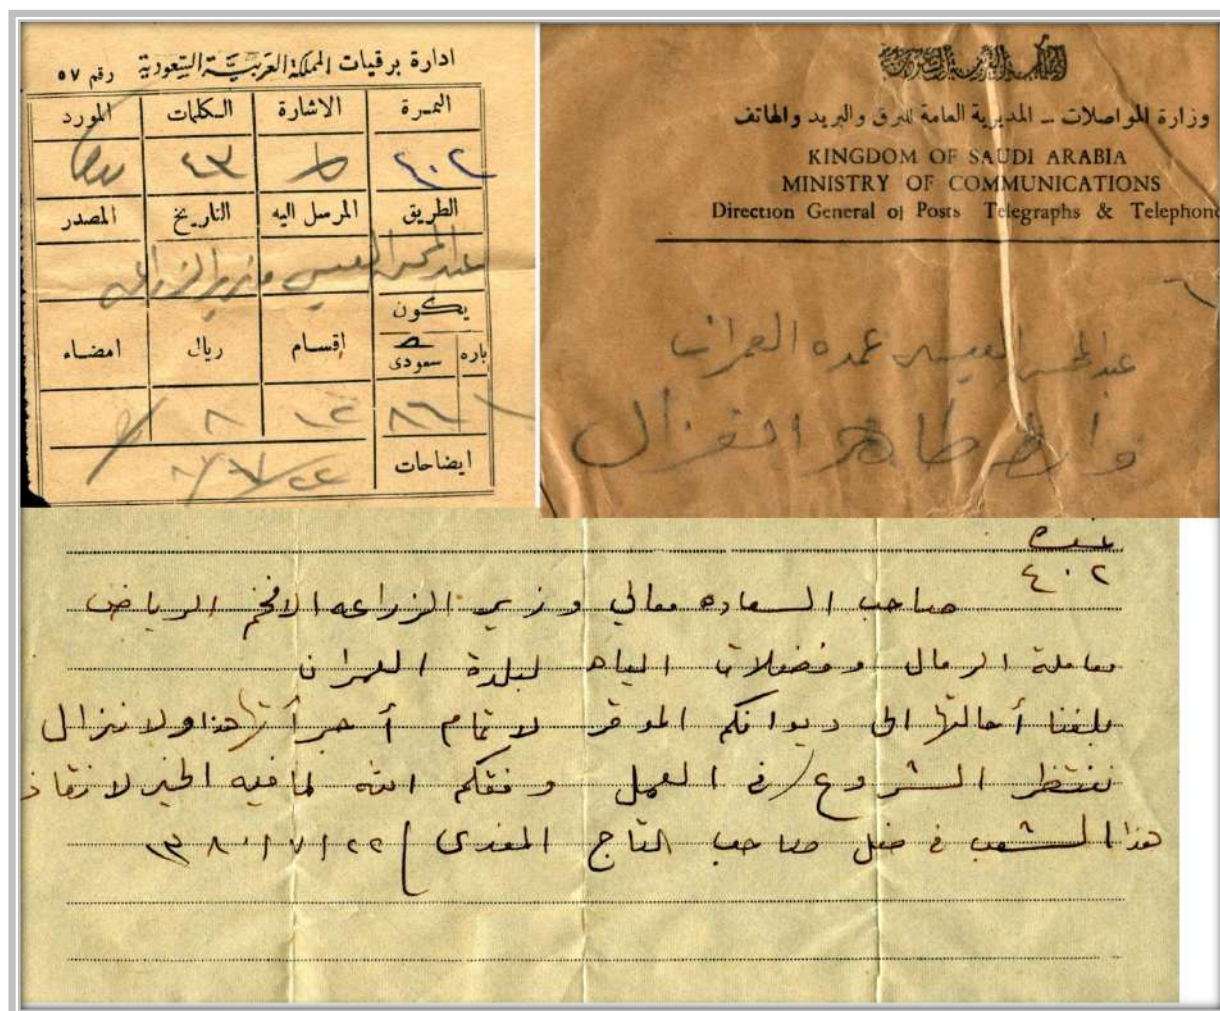 ادارة برقيات المملكة العربية السعودية رقم ٥٧
النمرة الاشارة الكلمات المورد
٤٠٢ ط ٤٣
الطريق المرسل اليه التاريخ المصدر
عبدالمحسن العيسى وزير الزراعه
يكون
باره سعودى إقسام ريال امضاء
٨
ايضاحات
المملكة العربية السعودية
وزارة المواصلات ـ المديرية العامة للبرق والبريد والهاتف
KINGDOM OF SAUDI ARABIA
MINISTRY OF COMMUNICATIONS
Direction General of Posts Telegraphs & Telephone
٦
عبدالمحسن العيسى عمده العمران
طاهر الغزال
نمره
٤٠٢
صاحب السعاده معالي وزير الزراعه الافخم الرياض
معاملة الرمال وفضلات المياه لبلدة العمران
بلغنا أحالتها الى ديوانكم الموقر لاتمام أجرأتها هذا ولا نزال
ننتظر الشروع في العمل وفقكم الله لما فيه الخير لانقاذ
هذا الشعب في ضل صاحب التاج المفدى ٢٢/٧/١٣٨٠